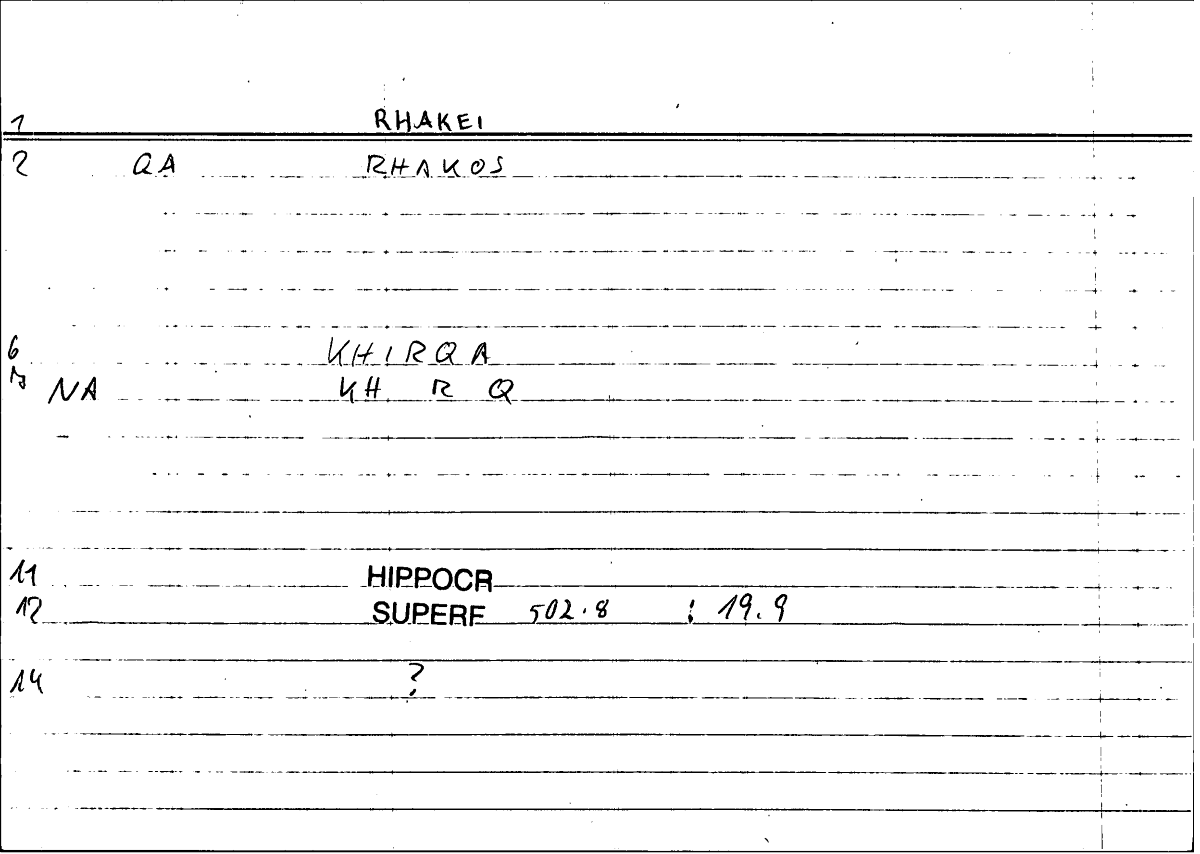 1 RHAKEI
2 QA RHAKOS
6 KHIRQA
7 NA KH R Q
11 HIPPOCR
12 SUPERF 502.8 : 19.9
14 ?